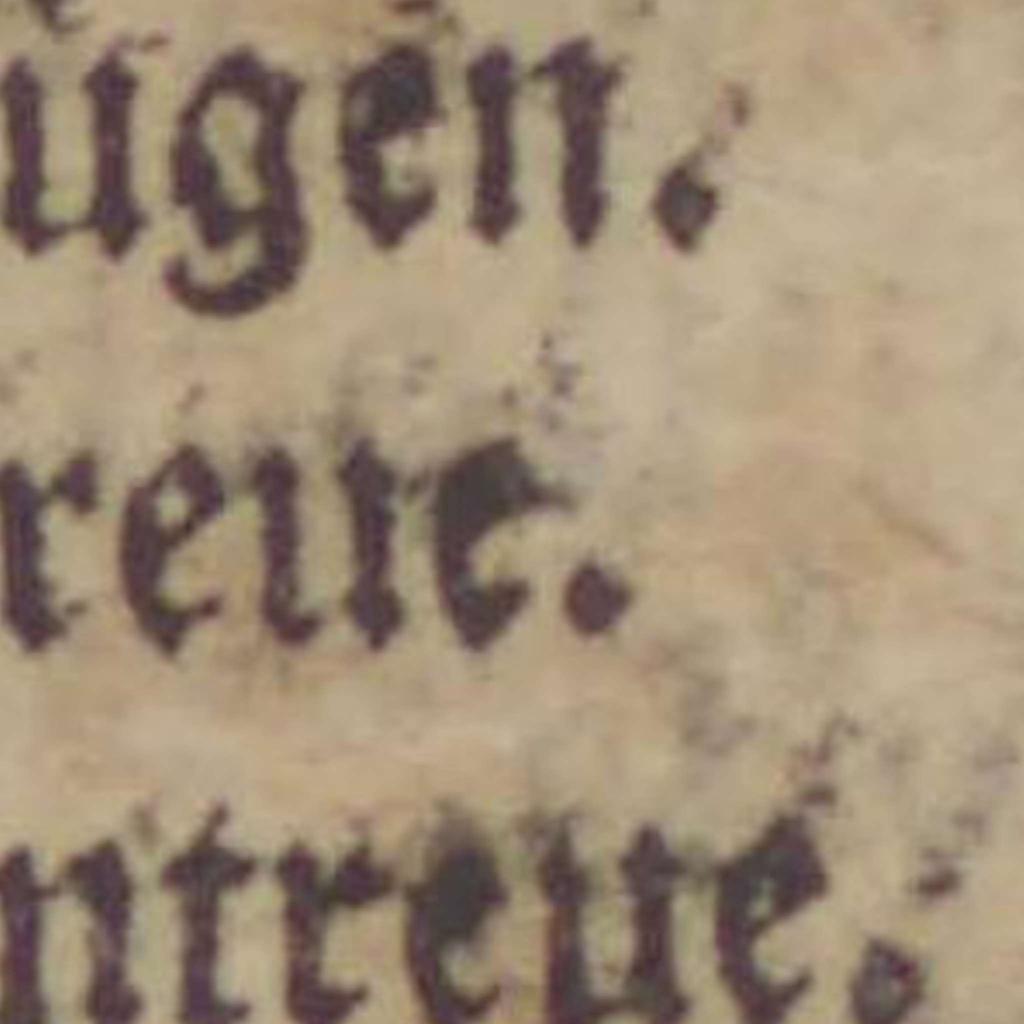 ugen.
reue.
ntreue.